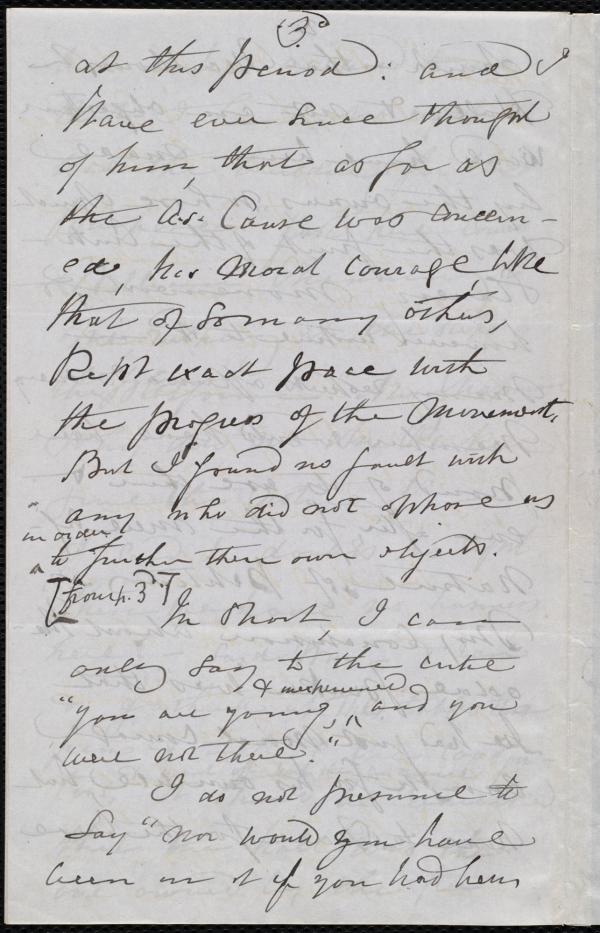 3d
at this period: and I
have ever since thought
of him, that as far as
the A.S. Cause was concern-
ed, his moral courage, like
that of so many others,
Kept exact pace with
the progress of the Movement.
But I found no fault with
any who did not oppose us
in order
to further their own objects.
[from p. 3d.]
In short, I can
only say to the critic
& inexperienced
"you are young, and you
were not there."
I do not presume to
say "nor would you have
been in it if you had been